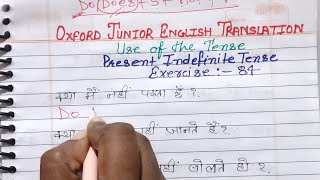 Do(Does)+S+Not
Oxford Junior English Translation
Use of the Tense
Present Indefinite Tense
Exercise:- 84
क्या मैं नहीं पढ़ता हूँ ?
Do
क्या नहीं जानते हैं ?
नहीं बोलते हो ?